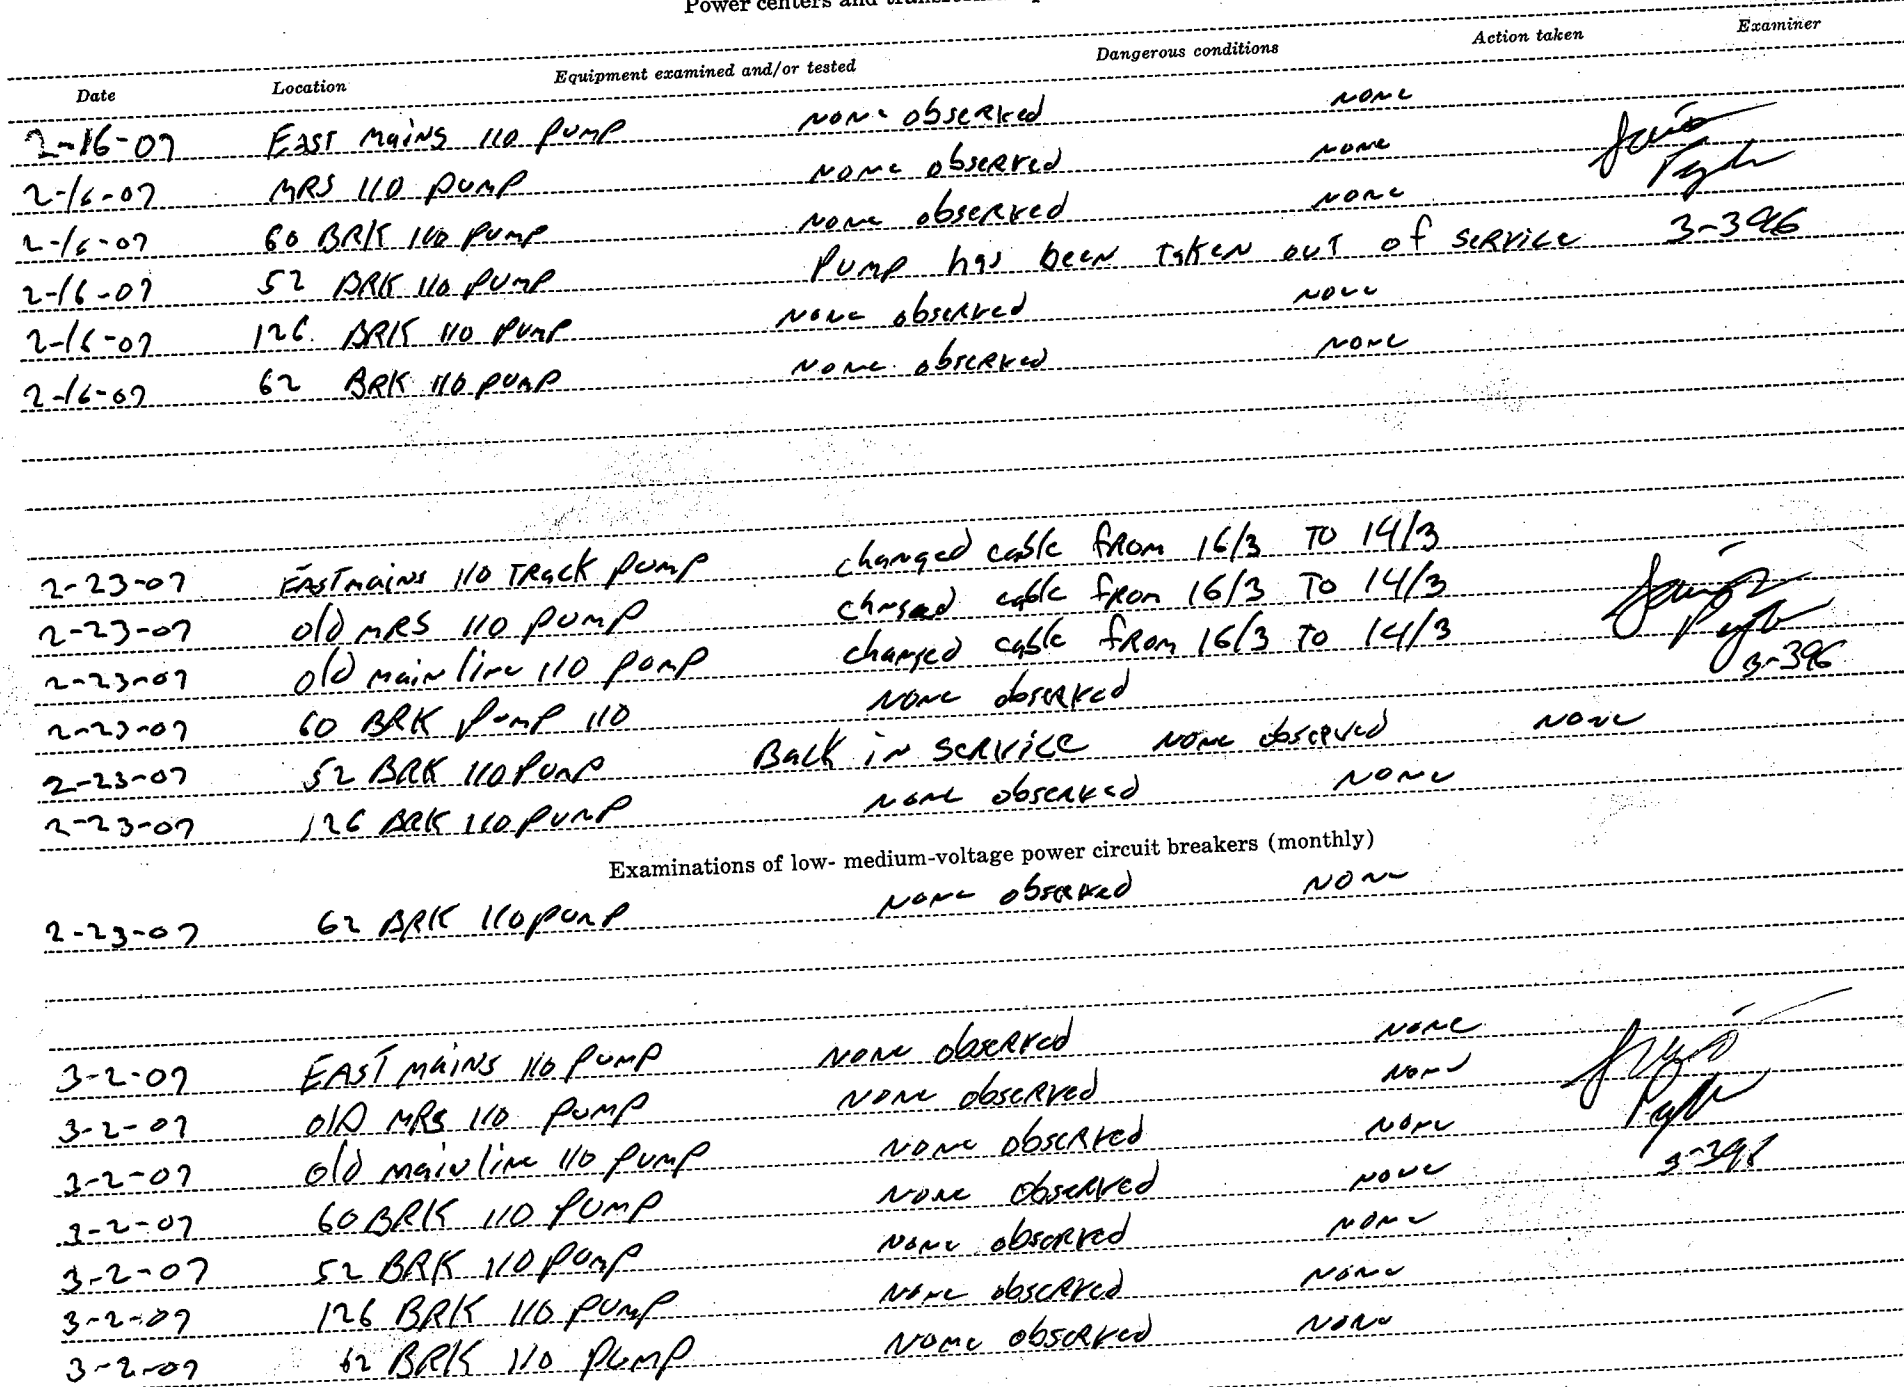 Power centers and
Date Location Equipment examined and/or tested Dangerous conditions Action taken Examiner
2-16-07 EAST MAINS 110 PUMP NONE observed NONE
2-16-07 MRS 110 PUMP NONE observed NONE
2-16-07 60 BRK 110 PUMP NONE observed NONE
2-16-07 52 BRK 110 PUMP PUMP has been TAKEN OUT of SERVICE 3-396
2-16-07 126 BRK 110 PUMP NONE observed NONE
2-16-07 62 BRK 110 PUMP NONE observed NONE
2-23-07 EAST mains 110 TRACK PUMP changed cable from 16/3 TO 14/3
2-23-07 old MRS 110 PUMP changed cable from 16/3 TO 14/3
2-23-07 old main line 110 pump changed cable from 16/3 TO 14/3 3-396
2-23-07 60 BRK PUMP 110 NONE observed
2-23-07 52 BRK 110 PUMP Back in SERVICE NONE observed NONE
2-23-07 126 BRK 110 PUMP NONE observed NONE
Examinations of low- medium-voltage power circuit breakers (monthly)
2-23-07 62 BRK 110 PUMP NONE observed NONE
3-2-07 EAST MAINS 110 PUMP NONE observed NONE
3-2-07 OLD MRS 110 PUMP NONE observed NONE
3-2-07 old main line 110 PUMP NONE observed NONE
3-2-07 60 BRK 110 PUMP NONE observed NONE
3-2-07 52 BRK 110 PUMP NONE observed NONE
3-2-07 126 BRK 110 PUMP NONE observed NONE
3-2-07 62 BRK 110 PUMP NONE observed NONE